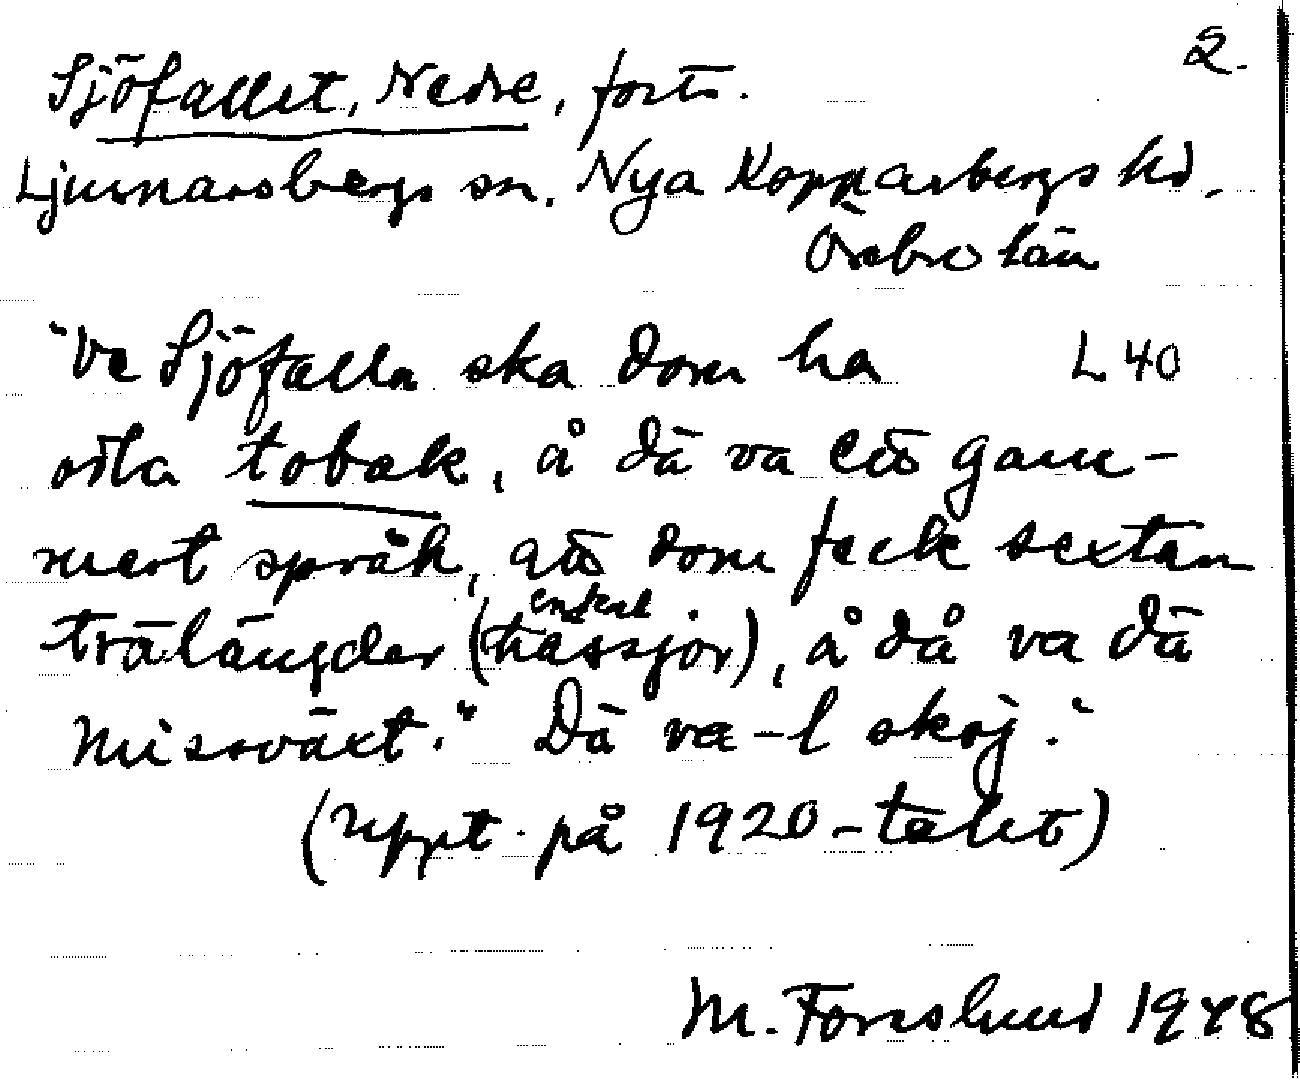 2.
Sjöfallet, Nedre, forts.
Ljusnarsbergs sn. Nya Kopparbergs hd.
Örebro län
"Ve Sjöfalla ska dom ha L 40
odla tobak, å dä va ett gam-
mert språk, att dom feck sextan
trälängder (enkel hässjor), å då va dä
missväxt." Dä va-l skoj."
(uppt. på 1920-talet)
M. Forslund 1948